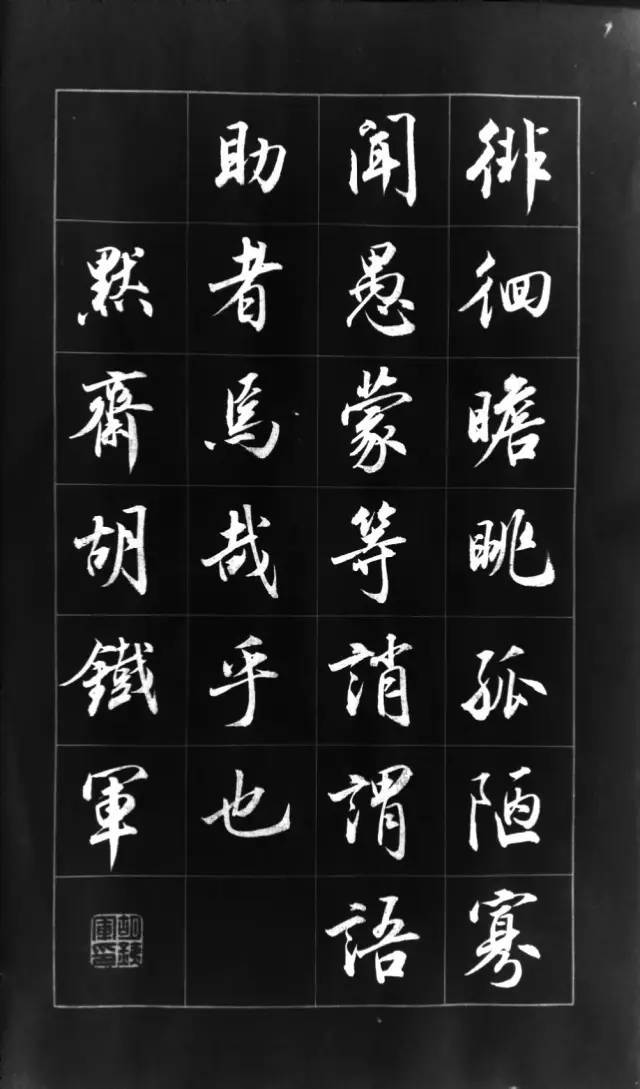 徘徊瞻眺孤陋寡
聞愚蒙等誚謂語
助者焉哉乎也
默齋胡鐵軍